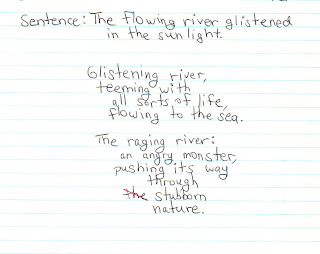 Sentence: The flowing river glistened
in the sunlight.
Glistening river,
teeming with
all sorts of life,
flowing to the sea.
The raging river:
an angry monster,
pushing its way
through
the stubborn
nature.